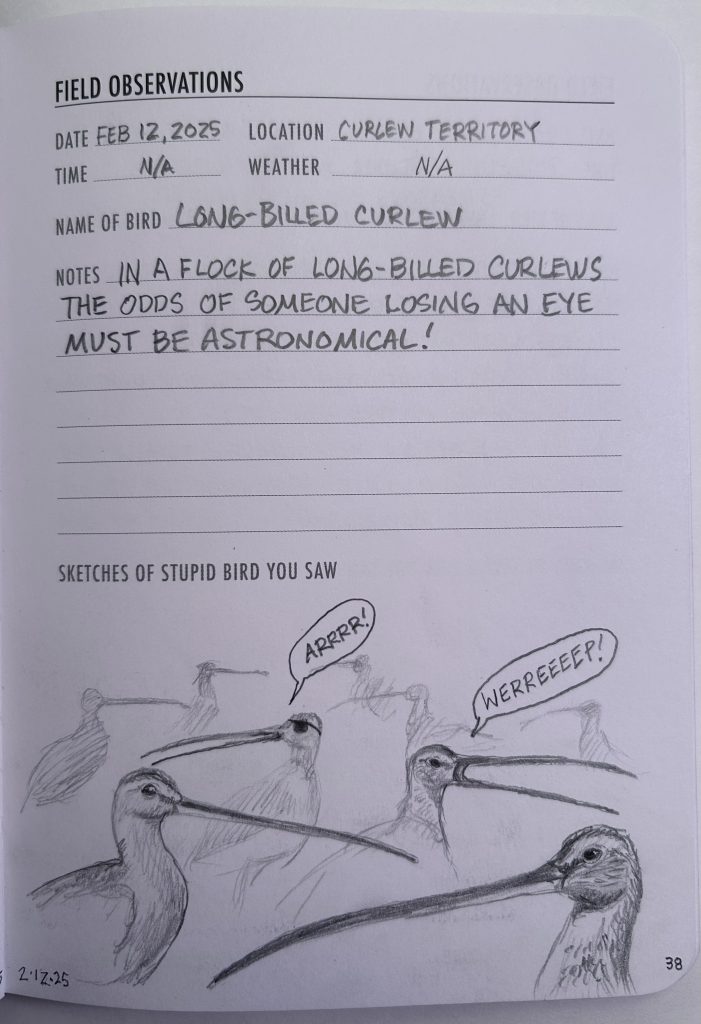 FIELD OBSERVATIONS
DATE FEB 12, 2025 LOCATION CURLEW TERRITORY
TIME N/A WEATHER N/A
NAME OF BIRD LONG-BILLED CURLEW
NOTES IN A FLOCK OF LONG-BILLED CURLEWS
THE ODDS OF SOMEONE LOSING AN EYE
MUST BE ASTRONOMICAL!
SKETCHES OF STUPID BIRD YOU SAW
ARRRR!
WERREEEEP!
2.12.25
38